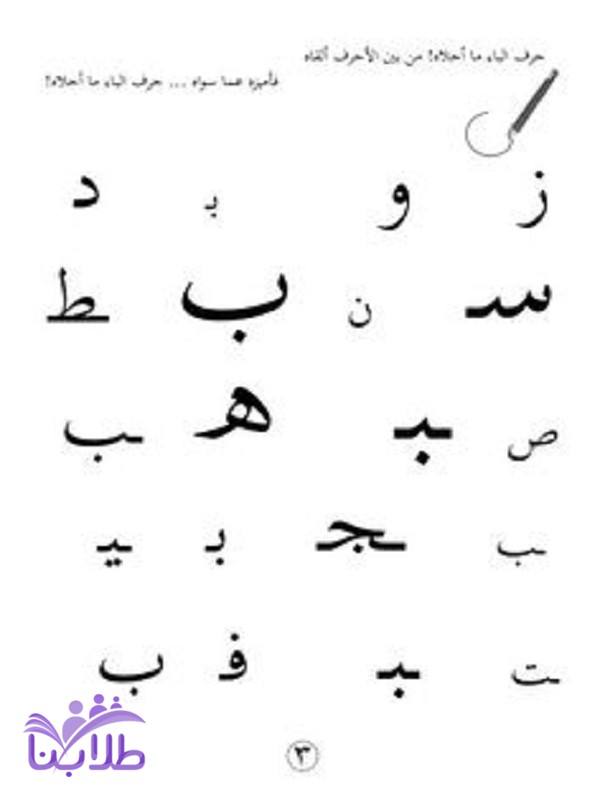 حرف الباء ما أحلاه! من بين الأحرف ألقاه
فأميزه عما سواه ... حرف الباء ما أحلاه!
ز و بـ د
سـ ن ب ط
ص ـبـ هـ ـب
ـب ـجـ بـ ـيـ
ـت ـبـ فـ ب
٣
طلابنا